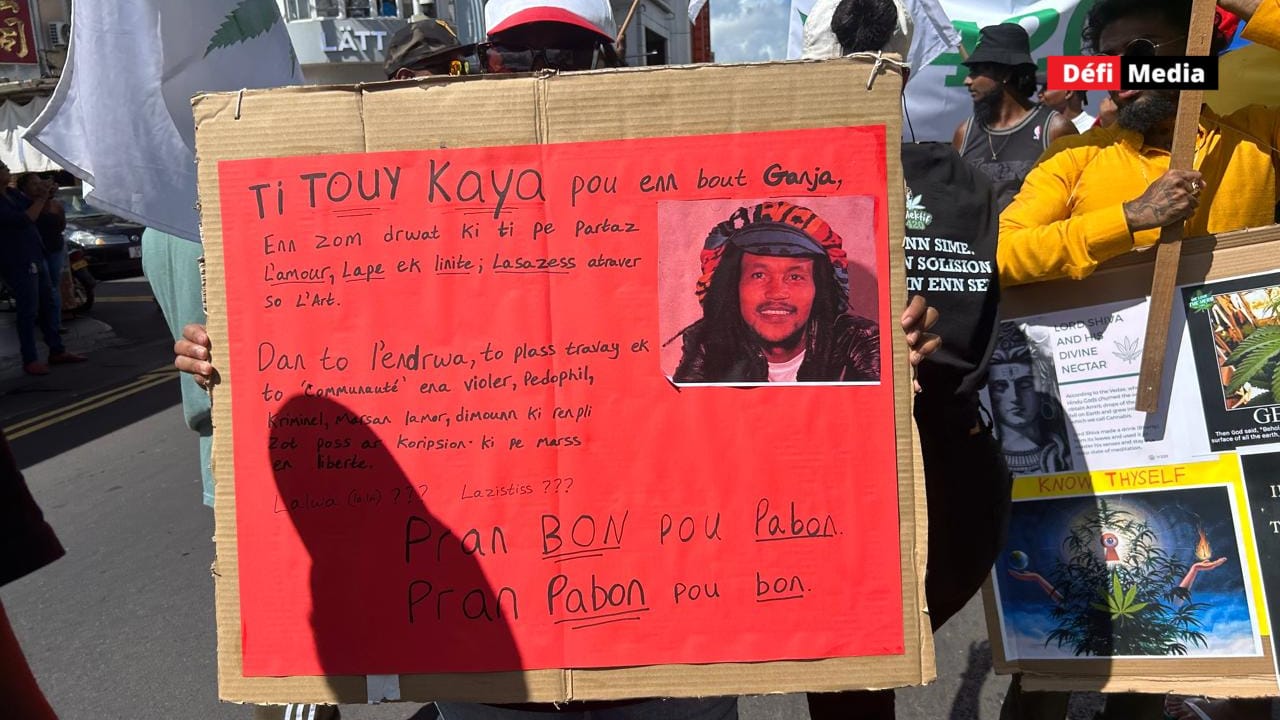 LÄTT
Défi Media
Ti TOUY Kaya pou enn bout Ganja,
Enn zom drwat ki ti pe Partaz
L'amour, Lape ek linite; Lasazess atraver
so L'Art.
Dan to l'endrwa, to plass travay ek
to 'Communauté' ena violer, Pedophil,
Kriminel, Marsan lamor, dimounn ki renpli
Zot poss ar Koripsion. ki pe marss
en liberte.
Lalwa ??? Lazistiss ???
Pran BON pou Pabon.
Pran Pabon pou bon.
NN SIME,
N SOLISION
IN ENN SE
LORD SHIVA
AND HIS
DIVINE
NECTAR
KNOW THYSELF
GE
Then God said, "Behold
surface of all the earth